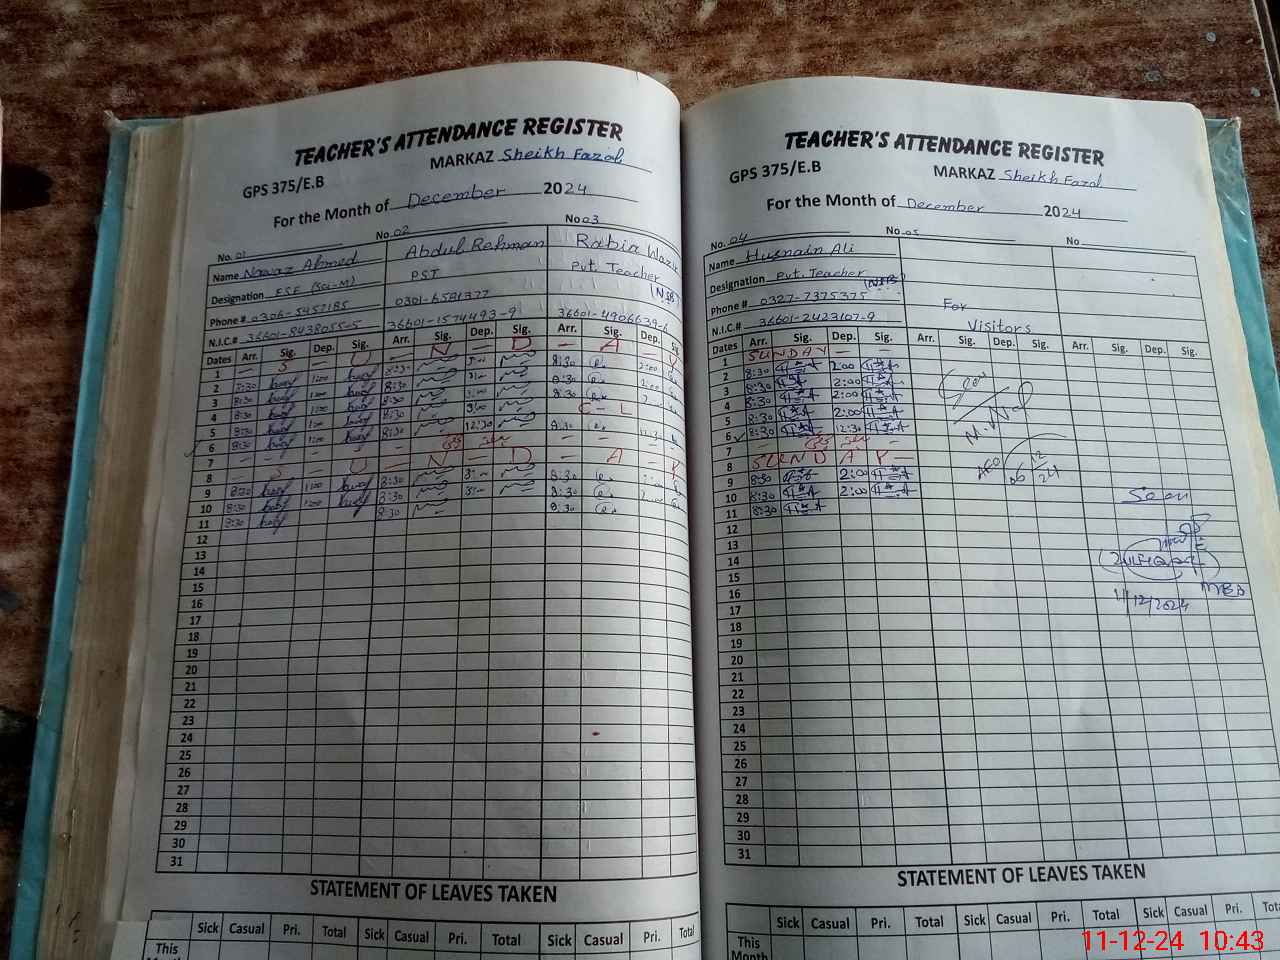 TEACHER'S ATTENDANCE REGISTER
GPS 375/E.B MARKAZ Sheikh Fazal
For the Month of December 2024
No. 01 No. 02 No 03
Name Nawaz Ahmed Abdul Rehman Rabia Wazir
Designation ESE (Sci-M) PST Pvt. Teacher (NSB)
Phone # 0306-5457185 0301-6581377
N.I.C.# 36601-8438055-5 36601-1574493-9 36601-4906639-6
Dates Arr. Sig. Dep. Sig. Arr. Sig. Dep. Sig. Arr. Sig. Dep. Sig.
1 — S — U — N — D — A — Y
2 8:30 1:00 8:30 8:30 2:00
3 8:30 1:00 8:30 8:30 2:00
4 8:30 1:00 8:30 8:30
5 8:30 1:00 8:30 C - L
6 8:30 1:00 8:30 12:30 8:30
7 — — — — — —
8 — S — U — N — D — A — Y
9 8:30 1:00 8:30 8:30
10 8:30 1:00 8:30 8:30
11 8:30 8:30 8:30
12
13
14
15
16
17
18
19
20
21
22
23
24
25
26
27
28
29
30
31
STATEMENT OF LEAVES TAKEN
Sick Casual Pri. Total Sick Casual Pri. Total Sick Casual Pri. Total
This
Month
TEACHER'S ATTENDANCE REGISTER
GPS 375/E.B MARKAZ Sheikh Fazal
For the Month of December 2024
No. 04 No. 05 No
Name Husnain Ali
Designation Pvt. Teacher (NSB)
Phone # 0327-7375375 For
N.I.C.# 36601-2423107-9 Visitors
Dates Arr. Sig. Dep. Sig. Arr. Sig. Dep. Sig. Arr. Sig. Dep. Sig.
1 SUNDAY — —
2 8:30 2:00
3 8:30 2:00
4 8:30 2:00
5 8:30 2:00
6 8:30 12:30
7
8 SUNDAY —
9 8:30 2:00
10 8:30 2:00
11 8:30
12
13
14
15
16
17
18
19
20
21
22
23
24
25
26
27
28
29
30
31
AEO
06 12/24
Seen
11/12/2024
STATEMENT OF LEAVES TAKEN
Sick Casual Pri. Total Sick Casual Pri. Total Sick Casual Pri. Total
This
Month
11-12-24 10:43